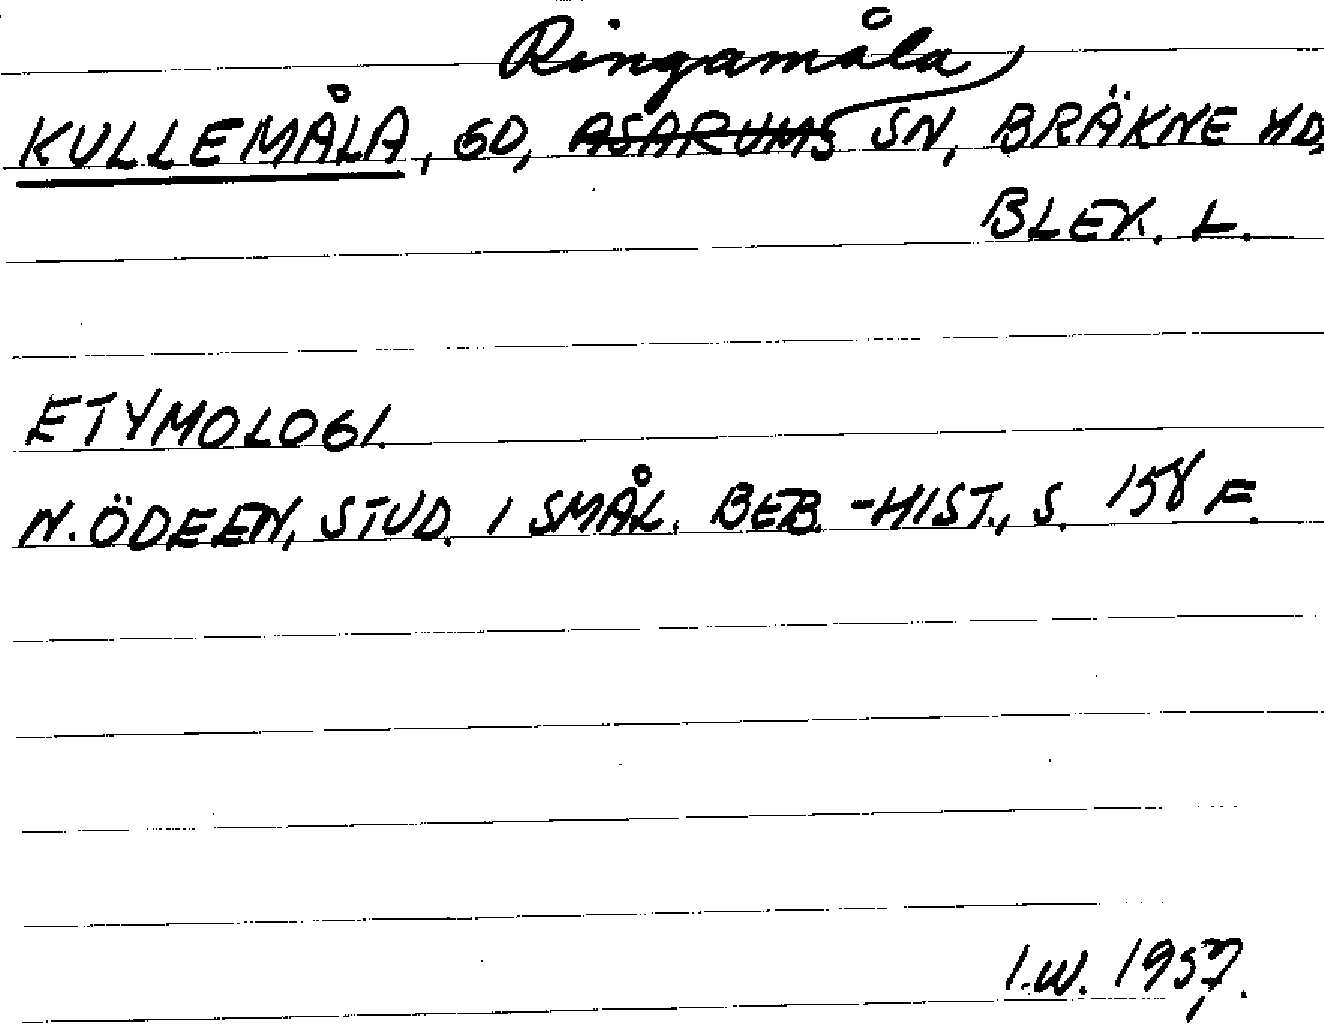 Ringamåla
KULLEMÅLA, GD, ASARUMS SN, BRÄKNE HD,
BLEK. L.
ETYMOLOGI.
N. ÖDEEN, STUD. I SMÅL. BEB.-HIST., S. 158 F.
I.W. 1957.